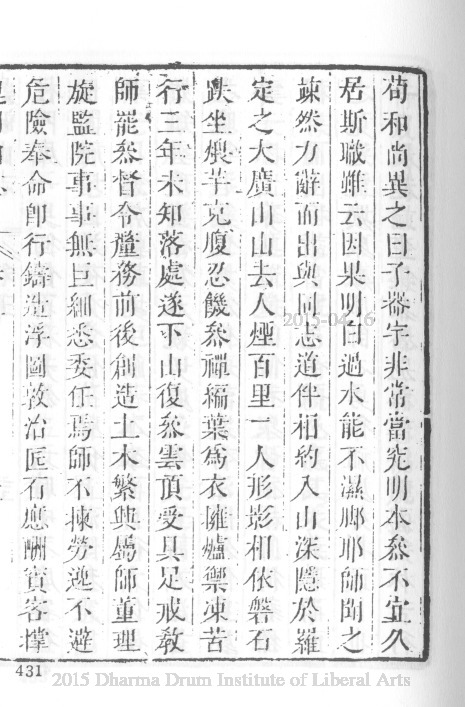 荷和尚異之曰子器宇非常當究明本叅不宜久
居斯職雖云因果明白過水能不濕脚耶師聞之
竦然力辭而出與同志道伴相約入山深隱於羅
定之大廣山山去人煙百里一人形影相依磐石
趺坐煨芋克腹忍饑叅禪編葉為衣擁爐禦凍苦
行三年未知落處遂下山復叅雲頂受具足戒教
師罷叅督令釐務前後創造土木繁興屬師董理
旋監院事事無巨細悉委任焉師不揀勞逸不避
危險奉命即行鑄造浮圖敦治匠石應酬賓客撑
431
2015-04-16
2015 Dharma Drum Institute of Liberal Arts